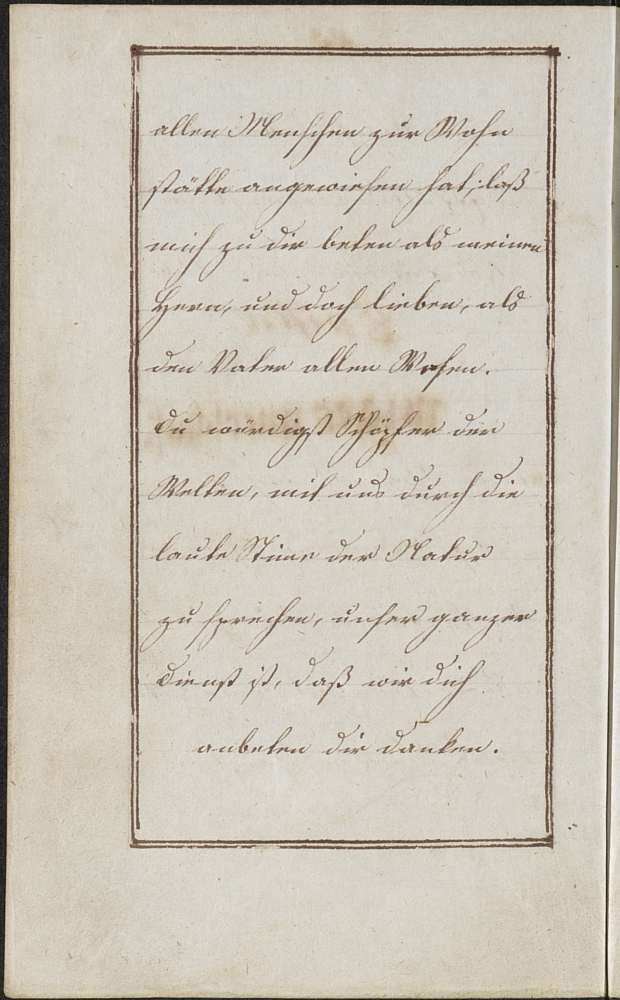 allen Menschen zur Wohn
stätte angewiesen hat, laß
mich zu dir beten als meinen
Herrn, und doch lieben, als
den Vater allen Wesen.
Du würdigst Schöpfer der
Welten, mit uns durch die
laute Stime der Natur
zu sprechen, unser ganzer
Dienst ist, daß wir dich
anbeten dir danken.